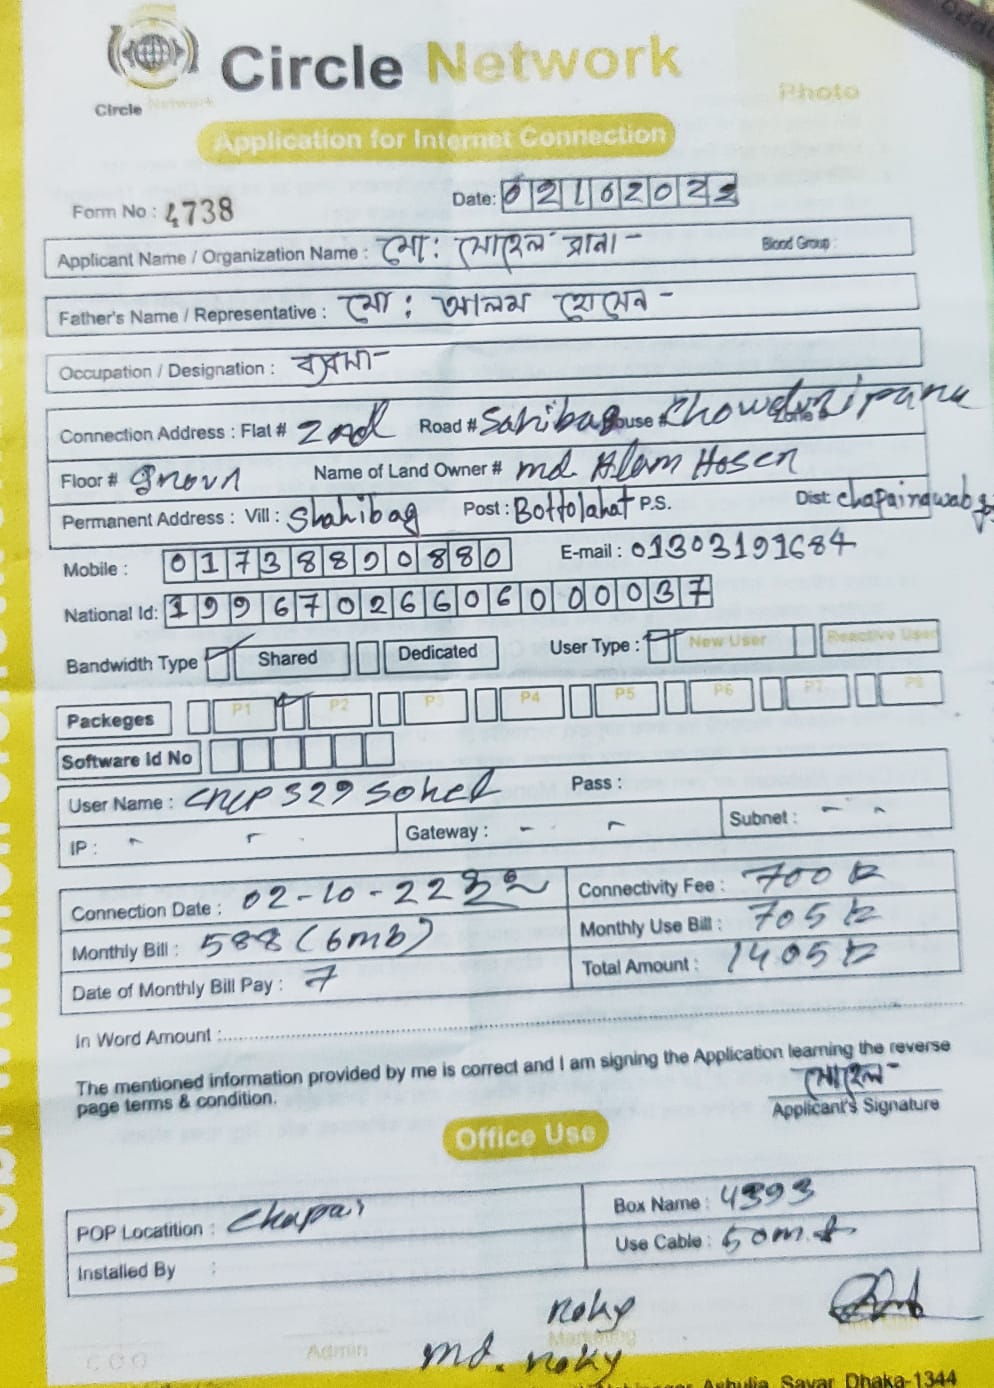 Circle Network
Circle Network
Photo
Application for Internet Connection
Form No : 4738
Date: 02102022
Applicant Name / Organization Name : মো: সোহেল রানা - Blood Group :
Father's Name / Representative : মো : আলম হোসেন -
Occupation / Designation : ব্যবসা -
Connection Address : Flat # 2nd Road # Sahibag House # Chowdhuripara
Floor # Name of Land Owner # md Alam Hosen
Permanent Address : Vill : Shahibag Post : Bottolahat P.S. Dist:
Mobile : 01738890880 E-mail : 01303191684
National Id: 19967026606000037
Bandwidth Type Shared Dedicated User Type : New User Reactive User
Packeges P1 P2 P3 P4 P5 P6 P7 P8
Software Id No
User Name : Pass :
IP : Gateway : Subnet :
Connection Date : 02-10-22 Connectivity Fee : 700
Monthly Bill : 588 (6mb) Monthly Use Bill : 705
Date of Monthly Bill Pay : 7 Total Amount : 1405
In Word Amount :
The mentioned information provided by me is correct and I am signing the Application learning the reverse
page terms & condition.
সোহেল -
Applicant's Signature
Office Use
POP Locatition : Chapai Box Name : 4393
Installed By : Use Cable : 50m
noky
Admin Marketing
CEO md. noky
Ashulia, Savar Dhaka-1344